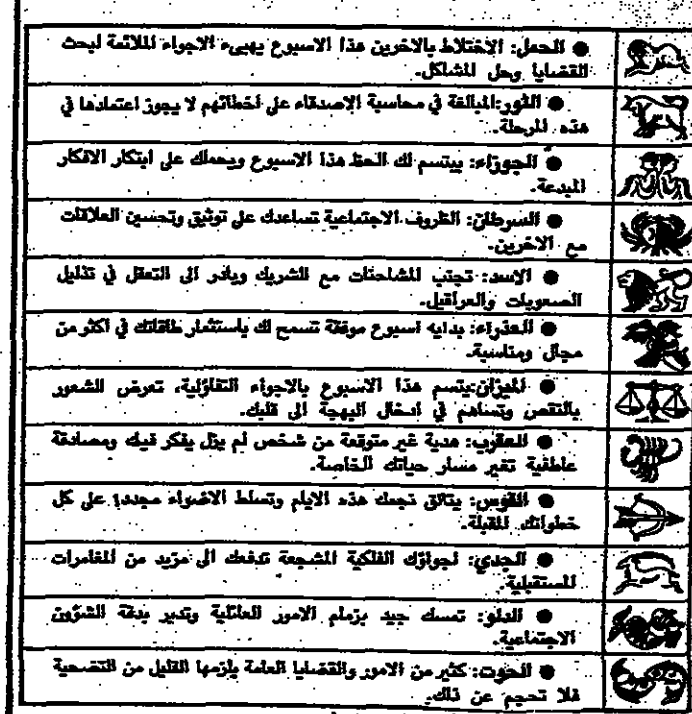 ● الحمل: الاختلاط بالاخرين هذا الاسبوع يهيىء الاجواء الملائمة لبحث
القضايا وحل المشاكل.
● الثور:المبالغة في محاسبة الاصدقاء على اخطائهم لا يجوز اعتمادها في
هذه المرحلة.
● الجوزاء: يبتسم لك الحظ هذا الاسبوع ويحملك على ابتكار الافكار
المبدعة.
● السرطان: الظروف الاجتماعية تساعدك على توثيق وتحسين العلاقات
مع الاخرين.
● الاسد: تجنب المشاحنات مع الشريك وبادر الى التعقل في تذليل
الصعوبات والعراقيل.
● العذراء: بدايه اسبوع موفقة تسمح لك باستثمار طاقاتك في اكثر من
مجال ومناسبة.
● الميزان:يتسم هذا الاسبوع بالاجواء التفاؤلية، تعوض الشعور
بالنقص وتساهم في ادخال البهجة الى قلبك.
● العقرب: هدية غير متوقعة من شخص لم يزل يفكر فيك ومصادقة
عاطفية تغير مسار حياتك الخاصة.
● القوس: يتالق نجمك هذه الايام وتسلط الاضواء مجددا على كل
خطواتك المقبلة.
● الجدي: اجواؤك الفلكية المشجعة تدفعك الى مزيد من المغامرات
المستقبلية.
● الدلو: تمسك جيد بزمام الامور العائلية وتدير بدقة الشؤون
الاجتماعية.
● الحوت: كثير من الامور والقضايا العامة يلزمها القليل من التضحية
فلا تحجم عن ذلك.